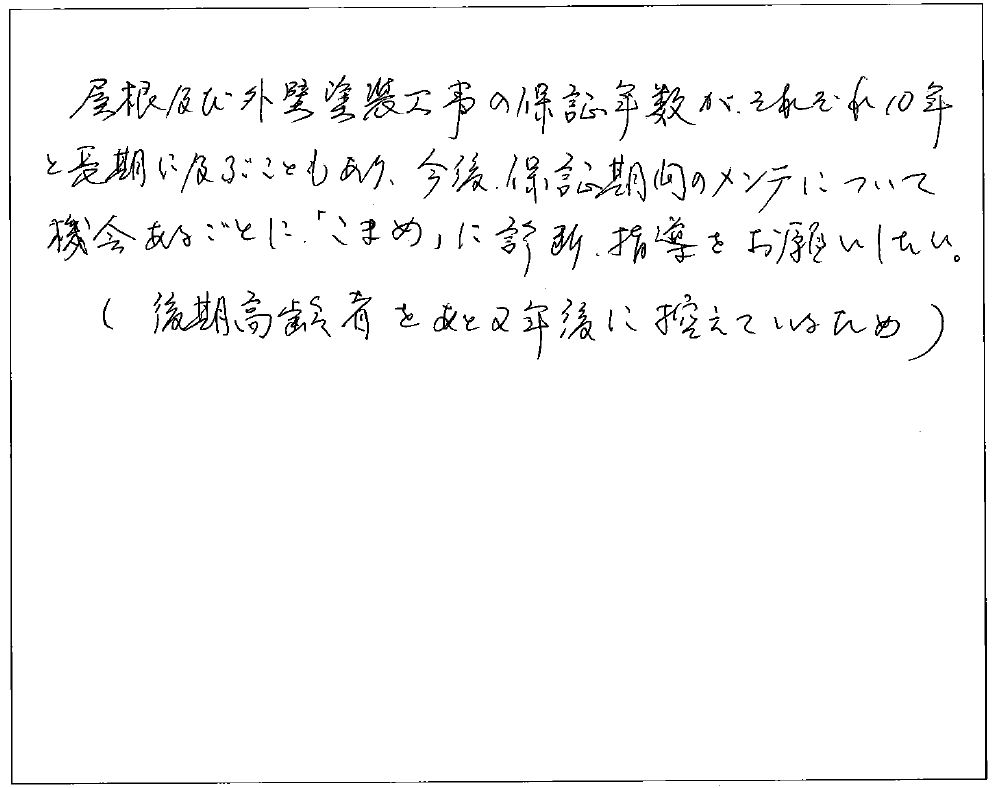 屋根及び外壁塗装工事の保証年数が、それぞれ10年
と長期に及ぶこともあり、今後、保証期間のメンテについて
機会あるごとに、「こまめ」に診断、指導をお願いしたい。
(後期高齢者をあと2年後に控えているため)